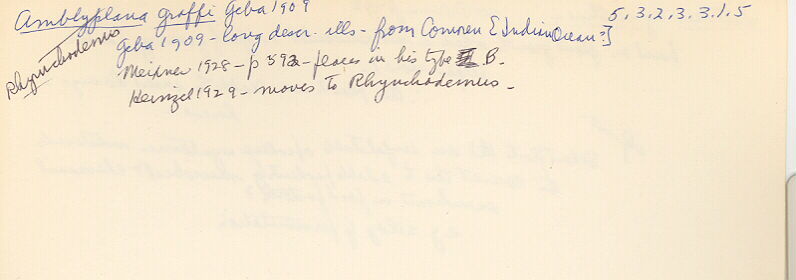 Amblyplana graffi Geba 1909
5.3.2.3.3.1.5
Rhynchodemus
Geba 1909 - long descr. ills - from Comoren [Indian Ocean?]
Meixner 1928 - p 592 - places in his type B.
Heinzel 1929 - moves to Rhynchodemus -